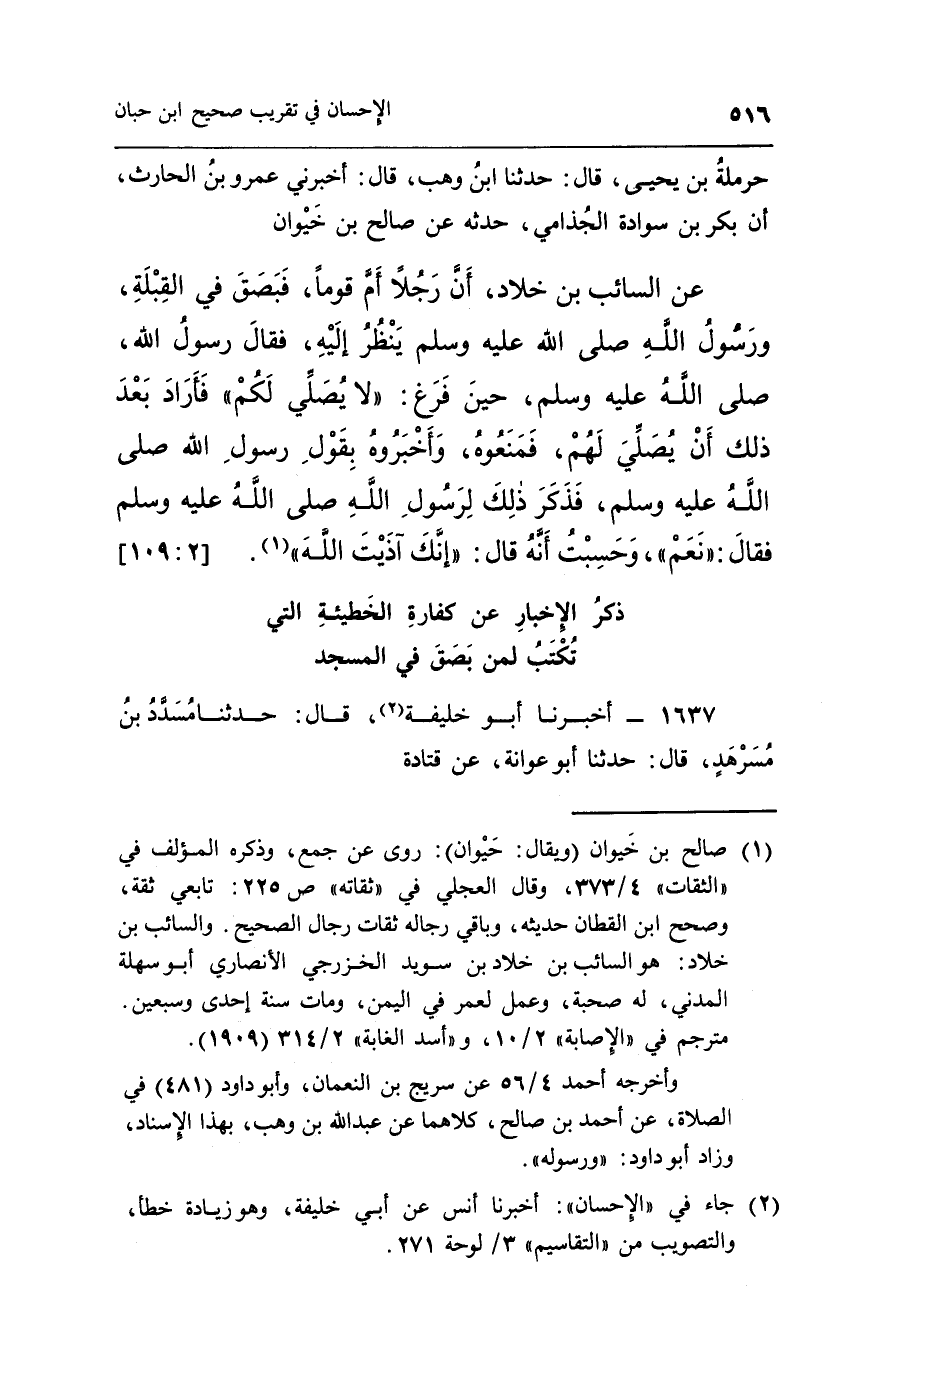 ٥١٦ الإحسان في تقريب صحيح ابن حبان
حرملةُ بن يحيـى، قال: حدثنا ابنُ وهب، قال: أخبرني عمرو بنُ الحارث،
أن بكر بن سوادة الجُذامي، حدثه عن صالح بن خَيْوان
عن السائب بن خلاد، أَنَّ رَجُلًا أَمَّ قوماً، فَبَصَقَ في القِبْلَةِ،
ورَسُولُ اللَّـهِ صلى الله عليه وسلم يَنْظُرُ إِلَيْهِ، فقالَ رسولُ الله،
صلى اللَّـهُ عليه وسلم، حينَ فَرَغ: «لا يُصَلِّي لَكُمْ» فَأَرَادَ بَعْدَ
ذلك أَنْ يُصَلِّيَ لَهُمْ، فَمَنَعُوهُ، وَأَخْبَرُوهُ بِقَوْلِ رسول الله صلى
اللَّـهُ عليه وسلم، فَذَكَرَ ذٰلِكَ لِرَسُولِ اللَّـهِ صلى اللَّـهُ عليه وسلم
فقالَ: «نَعَمْ»، وَحَسِبْتُ أَنَّهُ قال: «إِنَّكَ آذَيْتَ اللَّـهَ»(١). [٢: ١٠٩]
ذكرُ الإخبارِ عن كفارةِ الخَطيئـةِ التي
تُكْتَبُ لمن بَصَقَ في المسجد
١٦٣٧ ــ أخبـرنـا أبـو خليفـة(٢)، قـال: حـدثنـا مُسَدَّدُ بنُ
مُسَرْهَدٍ، قال: حدثنا أبو عوانة، عن قتادة
(١) صالح بن خَيوان (ويقال: حَيْوان): روى عن جمع، وذكره المـؤلف في
«الثقات» ٣٧٣/٤، وقال العجلي في «ثقاته» ص ٢٢٥: تابعي ثقة،
وصحح ابن القطان حديثه، وباقي رجاله ثقات رجال الصحيح. والسائب بن
خلاد: هو السائب بن خلاد بن سـويد الخـزرجي الأنصاري أبـو سهلة
المدني، له صحبة، وعمل لعمر في اليمن، ومات سنة إحدى وسبعين.
مترجم في «الإصابة» ١٠/٢، و«أسد الغابة» ٣١٤/٢ (١٩٠٩).
وأخرجه أحمد ٥٦/٤ عن سريج بن النعمان، وأبو داود (٤٨١) في
الصلاة، عن أحمد بن صالح، كلاهما عن عبدالله بن وهب، بهذا الإسناد،
وزاد أبو داود: «ورسوله».
(٢) جاء في «الإحسان»: أخبرنا أنس عن أبـي خليفة، وهو زيـادة خطأ،
والتصويب من «التقاسيم» ٣/ لوحة ٢٧١.